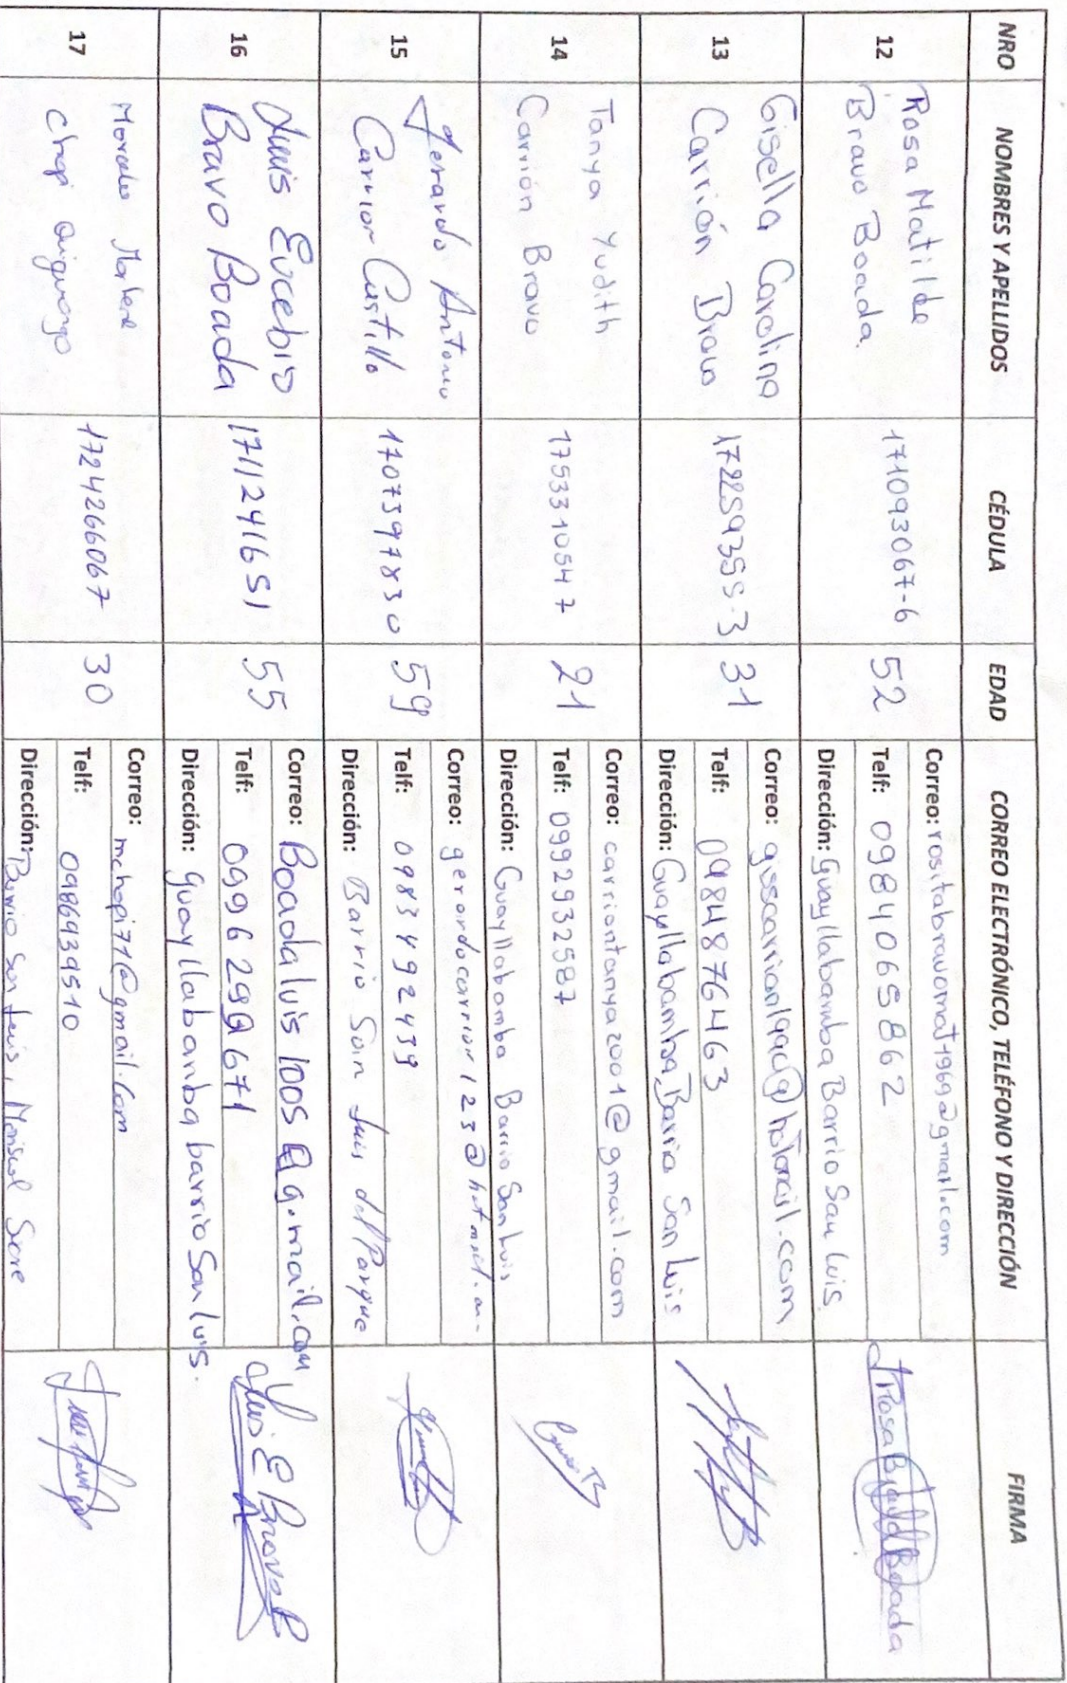 NRO NOMBRES Y APELLIDOS CÉDULA EDAD CORREO ELECTRÓNICO, TELÉFONO Y DIRECCIÓN FIRMA
12
Rosa Matilde
Bravo Boada
171093067-6
52
Correo: rositabravomat1969@gmail.com
Telf: 0984065862
Dirección: Guayllabamba Barrio San Luis
Rosa B Boada
13
Gisella Carolina
Carrión Bravo
31
Correo:
Telf: 0984876463
Dirección: Guayllabamba, Barrio San Luis
14
Tanya Yudith
Carrión Bravo
1753310547
21
Correo: carriontanya2001@gmail.com
Telf: 0992932587
Dirección: Guayllabamba Barrio San Luis
15
Gerardo Antonio
Carrion Castillo
1707397830
59
Correo:
Telf: 0983492439
Dirección: Barrio San Luis del Parque
16
Luis Eucebio
Bravo Boada
1711241651
55
Correo: Boadaluis1005@g.mail.com
Telf: 0996299671
Dirección: guayllabanba barrio San luis.
Luis E Bravo B
17
Chapi
1724266067
30
Correo: mchapi71@gmail.com
Telf: 0986939510
Dirección: Barrio San Luis, Mariscal Sucre